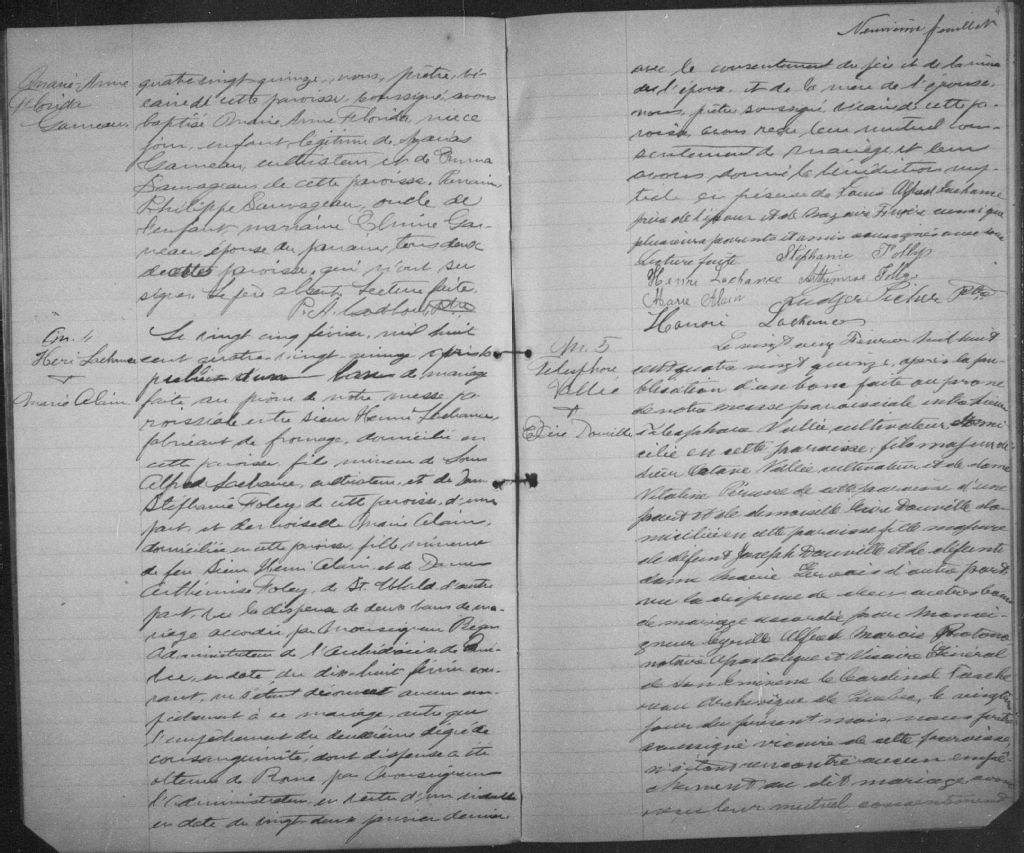 Marie-Anne
Florida
Garneau.
quatre vingt quinze, nous, prêtre, vi-
caire de cette paroisse, soussigné, avons
baptisé Marie Anne Florida, née ce
jour, enfant légitime de
Garneau, cultivateur et de Emma
Sauvageau de cette paroisse. Parrain
Philippe Sauvageau, oncle de
l'enfant marraine Elmire Gar-
neau, épouse du parrain, tous deux
de cette paroisse, qui n'ont su
signer. Le père absent. Lecture faite.
Ptre
M. 4
Henri Lachance
+
Marie Alain.
Le vingt cinq février, mil huit
cent quatre-vingt-quinze après la
de mariage
faite au prône de notre messe pa
roissiale entre Sieur Henri Lachance,
fabricant de fromage, domicilié en
cette paroisse, fils mineur de Louis
Alfred Lachance, cultivateur, et de Dame
Stéphanie Foley de cette paroisse, d'une
part, et demoiselle Marie Alain,
domiciliée en cette paroisse, fille mineure
de feu Sieur Henri Alain et de Dame
Arthémise Foley, de St. Ubald d'autre
part, vu la dispense de deux bans de ma-
riage accordée par Monseigneur Begin
Administrateur de l'Archidiocèse de Qué-
bec, en date du dix-huit février cou-
rant, ne s'étant découvert aucun em-
pêchement à ce mariage, autre que
l'empêchement du deuxième degré de
consanguinité, dont dispense a été
obtenue de Rome, par Monseigneur
l'Administrateur, en vertu d'un indult
en date du vingt deux janvier dernier
Neuvième feuillet
avec le consentement du père et de la mère
de l'époux et de la mère de l'épouse,
nous, prêtre soussigné vicaire de cette pa-
roisse, avons reçu leur mutuel con-
sentement de mariage et leur
avons donné la bénédiction nup-
tiale en présence de Louis Alfred Lachance
père de l'époux et de ainsi que
plusieurs parents et amis soussignés avec nous
Lecture faite Stéphanie Folley
Henri Lachance Arthémise Folley
Marie Alain Ludger Picher Ptre
Honoré Lachance
M. 5
Télesphore
Vallée
+
Exère Douville
Le vingt cinq Février mil huit
cent quatre vingt quinze, après la pu-
blication d'un ban faite au prône
de notre messe paroissiale entre sieur
Télesphore Vallée cultivateur domi-
cilié en cette paroisse, fils majeur de
sieur Octave Vallée cultivateur et de dame
Vitaline Perusse de cette paroisse d'une
part et de demoiselle Exère Douville do-
miciliée en cette paroisse fille majeure
de défunt Joseph Douville et de défunte
dame Marie Gervais d'autre part
vu la dispense de deux autres bans
de mariage accordée par Monsei-
gneur Cyrille Alfred Marois Protono-
notaire Apostolique et Vicaire Général
de Son Eminence le Cardinal Tasche
reau Archevêque de Québec, le vingtième
jour du présent mois, nous prêtre
soussigné vicaire de cette paroisse
n'étant rencontré aucun empê-
chement au dit mariage avons
reçu leur mutuel consentement